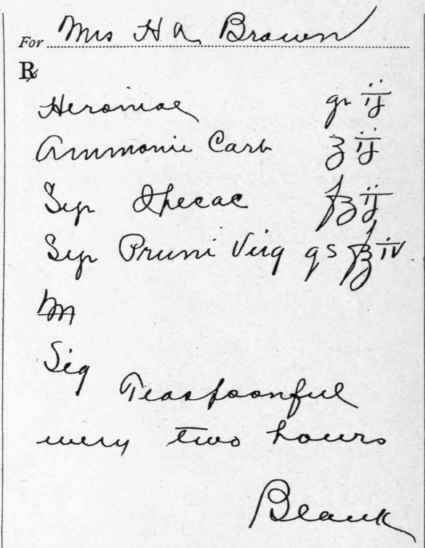 For Mrs H A Brown
℞
Heroinae gr ij
Ammonii Carb ʒ ij
Syr Ipecac f℥ ij
Syr Pruni Virg qs f℥ iv
M
Sig
Teaspoonful
every two hours
Blank